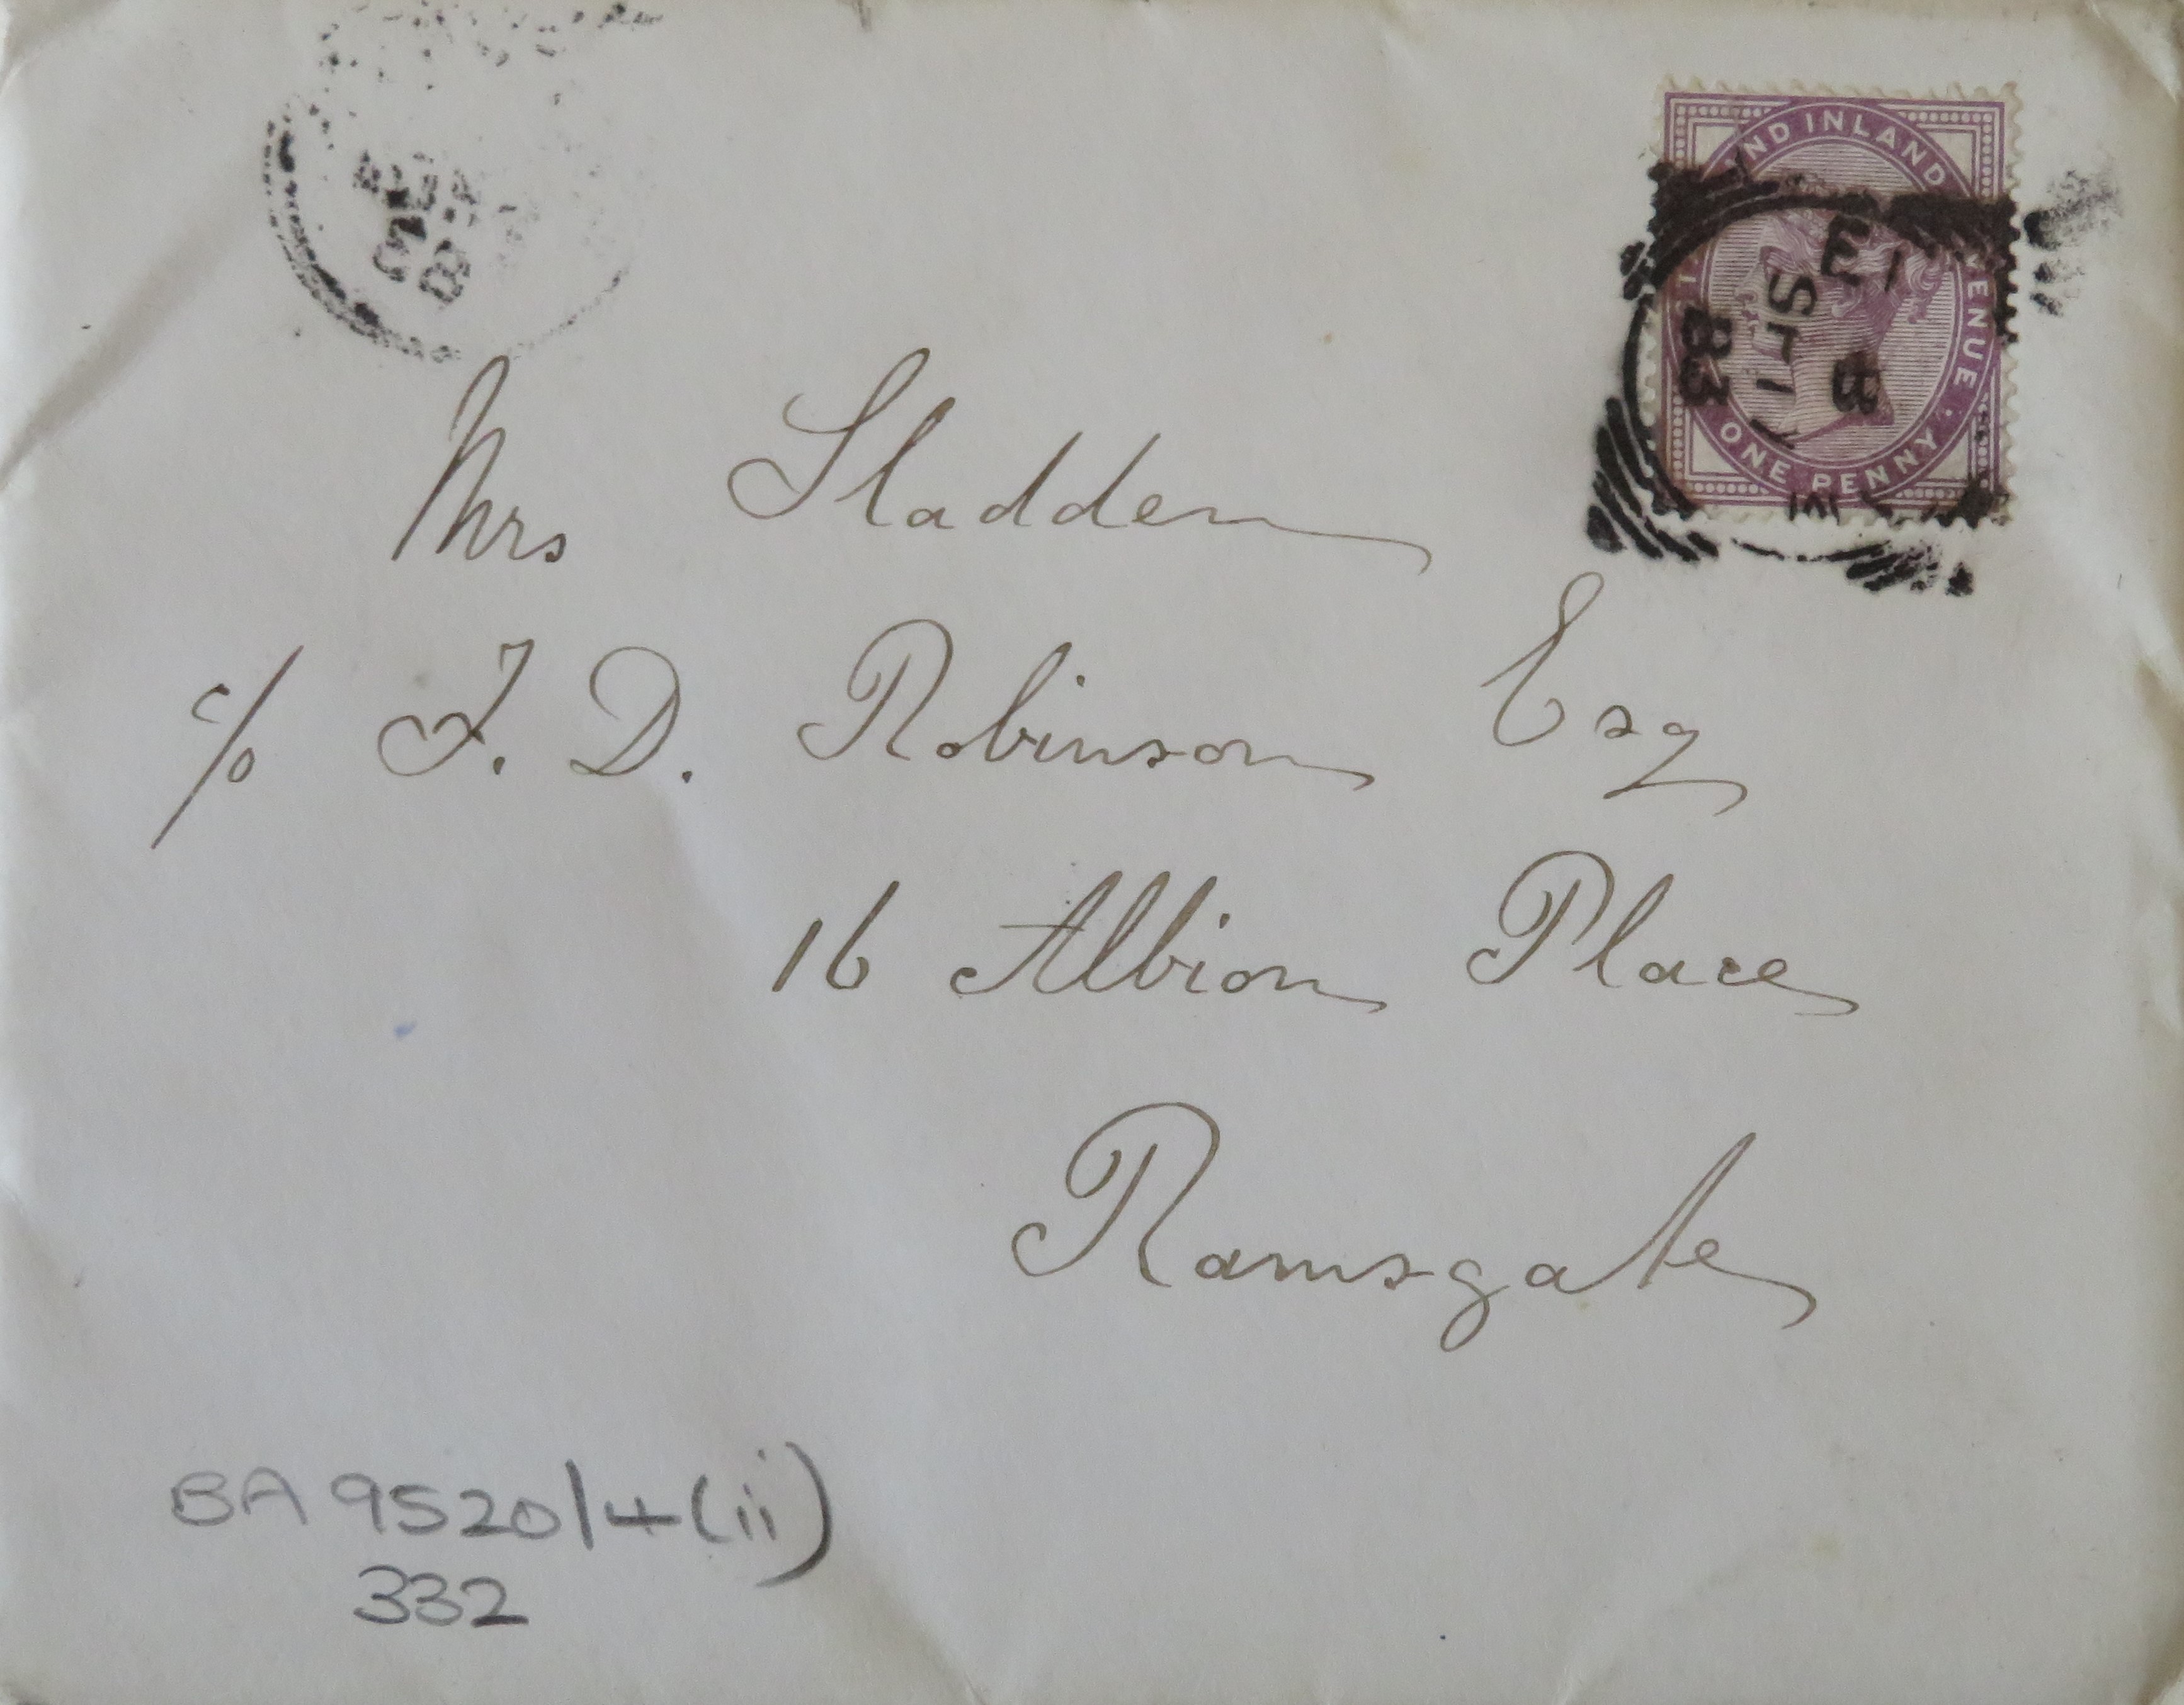 ND INLAND
ENUE.
ONE PENNY.
83
Mrs Sladden
c/o F. D. Robinson Esq
16 Albion Place
Ramsgate
BA 9520/4(ii)
332